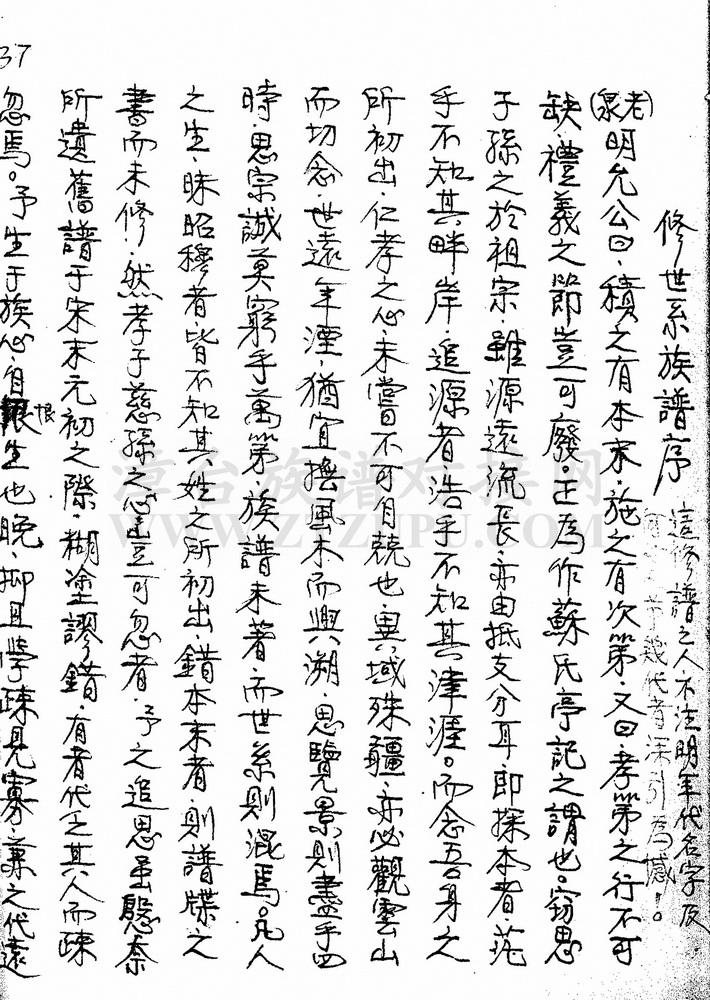 37
修世系族譜序
這修譜之人不注明年代名字及
幾代者深引為憾。
(老泉)明允公曰．積之有本末．施之有次第．又曰．孝第之行不可
缺．禮義之節豈可廢。正為作蘇氏亭記之謂也。窃思
子孫之於祖宗．雖源遠流長．亦由抵支分耳．即探本者．茫
乎不知其畔岸．追源者．浩乎不知其津涯。而念吾身之
所初出．仁孝之心．未嘗不可自兢也．異域殊疆．亦必觀雲山
而切念．世遠年湮．猶宜撫風木而興溯．思覽景則盡乎四
時．思宗誠莫窮乎萬第．族譜未著．而世系則混焉。凡人
之生．昧昭穆者．皆不知其姓之所初出．錯本末者．則譜牒之
書而未修．然孝子慈孫之心豈可忽者．予之追思虽慇奈
所遺舊譜于宋末元初之際．糊塗謬錯．有者代乏其人而疎
忽焉。予生于族心自恨生也晚．抑且學疎見寡．兼之代遠
漳台族谱对接网
WWW.ZTZUPU.COM